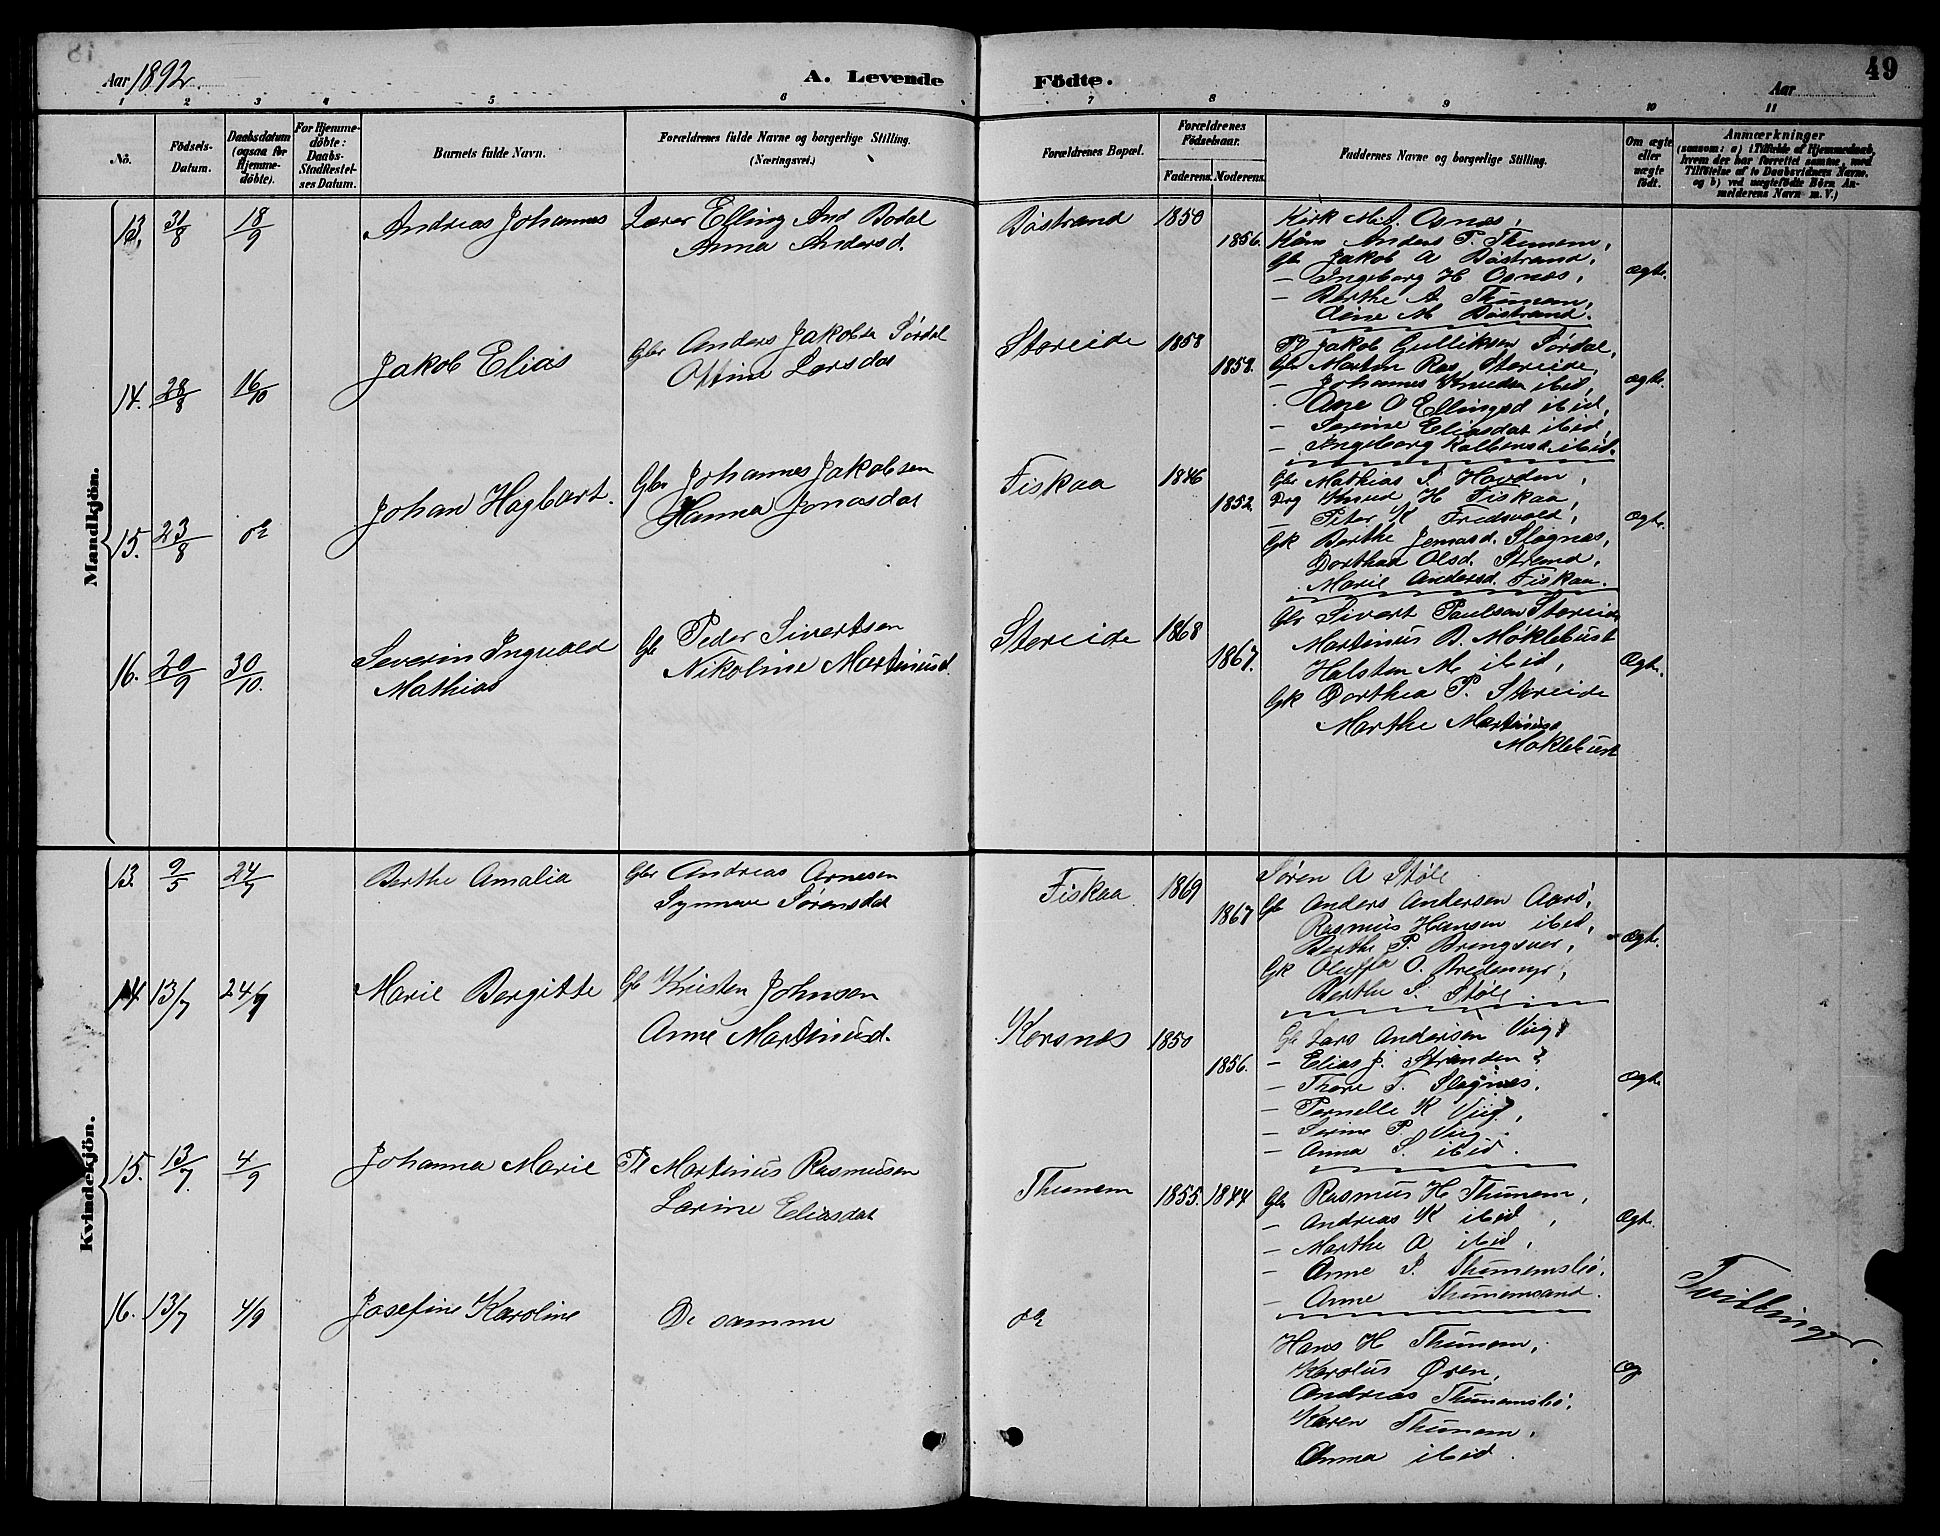 Aar 1892.
A. Levende Födte.
Aar
49
1 2 3 4 5 6 7 8 9 10 11
No.
Födsels-Datum.
Daabsdatum (ogsaa for Hjemme-döbte).
For Hjemme-döbte: Daabs-Stadfæstelses Datum.
Barnets fulde Navn.
Forældrenes fulde Navne og borgerlige Stilling. (Næringsvei.)
Forældrenes Bopæl.
Forældrenes Födselsaar.
Faderens. Moderens.
Faddernes Navne og borgerlige Stilling.
Om ægte eller uægte födt.
Anmærkninger
(saasom: a) i Tilfælde af Hjemmedaab,
hvem der har forrettet samme, med
Tilföielse af to Daabsvidners Navne,
og b) ved uægtefödte Börn An-
melderens Navn m. V.)
Mandkjön.
13. 31/8 18/9 Andreas Johannes
Lærer Elling And Bodal
Anna Andersd.
Bøstrand 1850 1856.
Kirk M. A. Osnes,
Anders P. Thunem,
Gbr Jakob A Bøstrand,
— Ingeborg H Osnes,
— Berthe A Thunem,
Oline M Bøstrand.
Ægte.
14. 28/8 16/10 Jakob Elias
Gbr Anders Jakobsen Sørdal
Ottine Larsdat
Storeide 1858 1858.
Jakob Gulliksen Sørdal,
Gbr Martin Ras Storeide,
— Johannes Knudsen ibid,
Ane O Ellingsd ibid,
— Serine Eliasdat ibid,
— Ingeborg Kolbensd ibid.
Ægte.
15. 23/8 do Johan Hagbart.
Gbr Johannes Jakobsen
Hanna Jonasdat
Fiskaa 1846 1852
Gbr Mathias S Hovden,
Drg Knud H Fiskaa,
— Peter K Fredsvold,
Gk Berthe Jonasd. Slagnæs,
Dorthea Olsd. Strand,
Marie Andersd. Fiskaa.
Ægte.
16. 20/9 30/10. Severin Ingvald
Mathias
Gb Peder Sivertsen
Nikoline Martinusd.
Storeide 1868 1867.
Gbr Sivert Paulsen Storeide
Martinus B. Møklebust
Halsten M ibid,
Gk Dorthea P. Storeide
Marthe Martinusd
Møklebust
Ægte.
Kvindekjön.
13. 9/5 24/7 Berthe Amalia
Gbr Andreas Arnesen
Synneve Sørensdat
Fiskaa 1869 1867
Søren A Støle
Gb Anders Andersen Aarø,
Rasmus Hansen ibid,
Berthe P. Bringsvor,
Gk Oluffa O. Bredemyr,
Berthe S. Støle
Ægte.
14. 13/7 24/7 Marie Bergitte
Gb Kristen Johnsen
Anne Martinusd.
Korsnes 1850 1856.
Gb Lars Andersen Viig,
— Elias J. Stranden,
— Thore T. Slagnes,
— Pernelle K Viig,
— Serine P. Viig.
— Anna S. ibid.
Ægte.
15. 13/7. 4/9 Johanna Marie
Pl Martinus Rasmusen
Larine Eliasdat
Thunem 1855. 1844
Gbr Rasmus H Thunem,
— Andreas K ibid,
— Marthe A ibid,
— Anne S. Thunemsbø,
— Anne Thunemsand.
Ægte.
16. 13/7 4/9 Josefine Karoline
De samme
do
Hans H Thunem,
Karolus Øren,
Andreas Thunemsbø,
Karen Thunem,
Anna ibid.
Æg
Tvillinger.